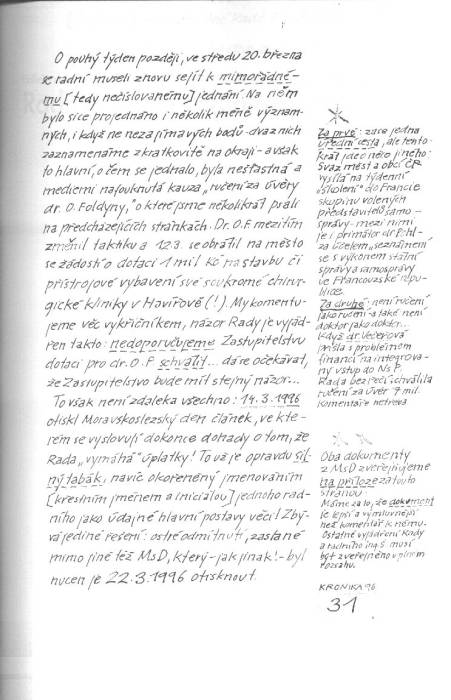 O pouhý týden později, ve středu 20. března
se radní museli znovu sejít k mimořádné-
mu [tedy nečíslovanému] jednání. Na něm
bylo sice projednáno i několik méně význam-
ných, i když ne nezajímavých bodů - dva z nich
zaznamenáme zkratkovitě na okraji - avšak
to hlavní, o čem se jednalo, byla nešťastná a
mediemi nafouknutá kauza „ručení za úvěry
dr. O. Foldyny," o které jsme několikrát psali
na předcházejících stránkách. Dr. O.F. mezitím
změnil taktiku a 12.3. se obrátil na město
se žádostí o dotaci 1 mil Kč na stavbu či
přístrojové vybavení své soukromé chirur-
gické kliniky v Havířově (!). My komentu-
jeme věc vykřičníkem, názor Rady je vyjád-
řen takto: nedoporučujeme Zastupitelstvu
dotaci pro dr. O.F. schválit... dá se očekávat,
že Zastupitelstvo bude mít stejný názor...
To však není zdaleka všechno: 14.3.1996
otiskl Moravskoslezský den článek, ve kte-
rém se vyslovují dokonce dohady o tom, že
Rada „vymáhá" úplatky! To už je opravdu sil-
ný tabák, navíc okořeněný jmenováním
[křestním jménem a iniciálou] jednoho rad-
ního jako údajné hlavní postavy věci! Zbý-
vá jediné řešení: ostré odmítnutí, zaslané
mimo jiné též MsD, který - jak jinak! - byl
nucen je 22.3.1996 otisknout.
Za prvé: zase jedna
úřední cesta, ale tento-
krát jde o něco jiného:
Svaz měst a obcí ČR
vysílá na týdenní
„školení" do Francie
skupinu volených
představitelů samo-
správy - mezi nimi
je i primátor dr. Pchl-
za účelem „seznámení
se s výkonem státní
správy a samosprávy
ve Francouzské repu-
blice.
Za druhé: není ručení
jako ručení - a také není
doktor jako doktor...
Když dr. Večeřová
přišla s problémem
financí na integrova-
ný vstup do NsP,
Rada bez řečí schválila
ručení za úvěr 7 mil.
Komentáře netřeba
Oba dokumenty
z MsD zveřejňujeme
na příloze za touto
stranou.
Máme za to, že dokument
je lepší a výmluvnější
než komentář k němu.
Ostatně vyjádření Rady
a radního ing. S. musí
být zveřejněno v plném
rozsahu.
KRONIKA 96
31